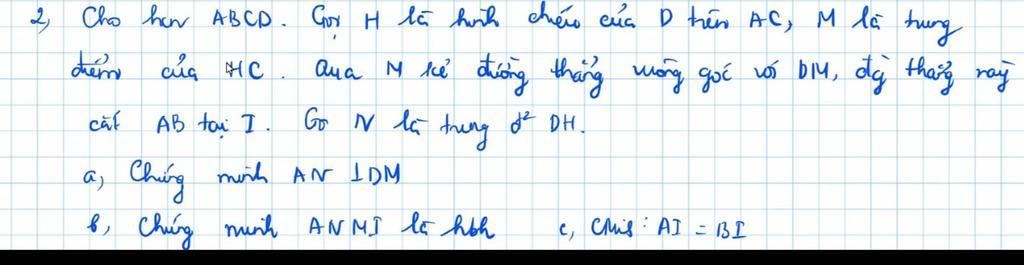 2, Cho hcn ABCD. Gọi H là hình chiếu của D trên AC, M là trung
điểm của HC. Qua M kẻ đường thẳng vuông góc với DM, đg thẳng này
cắt AB tại I. Gọ N là trung đ² DH.
a, Chứng minh AN ⊥DM
b, Chứng minh ANMI là hbh c, CMR: AI = BI